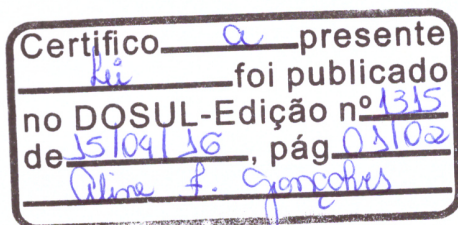 Certifico a presente
Lei foi publicado
no DOSUL-Edição nº 1315
de 15/04/16, pág 01/02
Aline F. Gonçalves